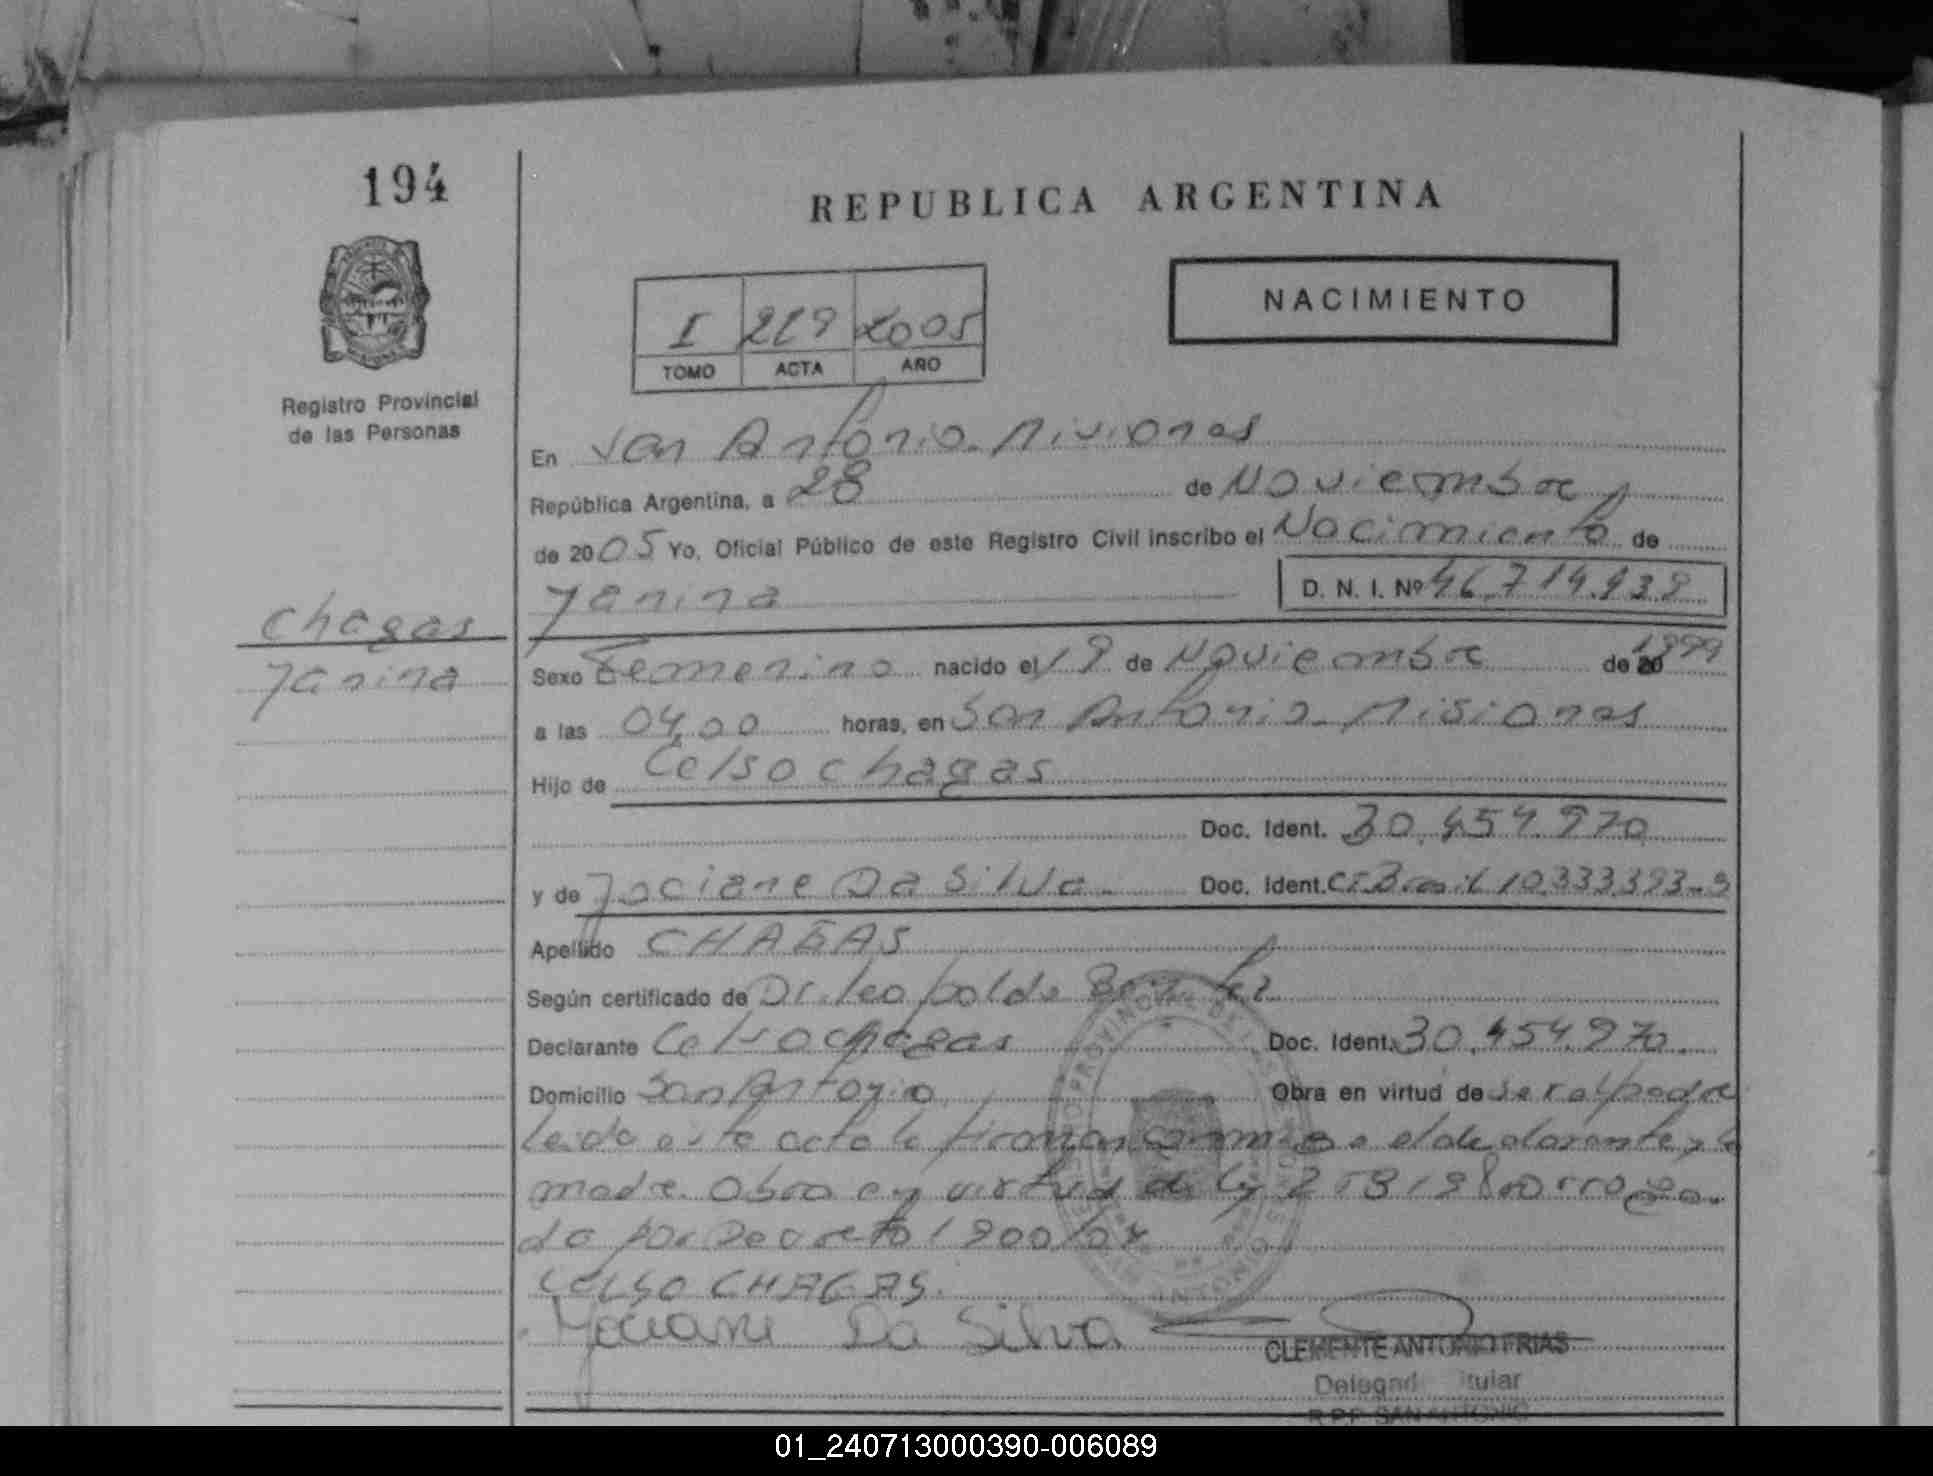 194
REPUBLICA ARGENTINA
NACIMIENTO
I 219 2005
TOMO ACTA AÑO
Registro Provincial
de las Personas
En San Antonio. Misiones
República Argentina, a 28 de Noviembre
de 2005 Yo, Oficial Público de este Registro Civil inscribo el Nacimiento de
Yanina D. N. I. Nº
Chagas
Yanina
Sexo Femenino nacido el 19 de Noviembre de 1999
a las 04,00 horas, en San Antonio. Misiones
Hijo de Celso Chagas
Doc. Ident. 30.454.970
y de Jociane Da Silva. Doc. Ident. CI. Brasil 10.333.393-9
Apellido CHAGAS
Según certificado de Dr. Leopoldo
Declarante Celso Chagas Doc. Ident. 30.454.970.
Domicilio San Antonio Obra en virtud de ser el padre
leida esta acta la firman conmigo el declarante y la
madre. Obra en virtud de
da por Decreto 1900/04
CELSO CHAGAS.
Jociane Da Silva
CLEMENTE ANTONIO FRIAS
Delegado Titular
R.P.P. SAN ANTONIO
01_240713000390-006089